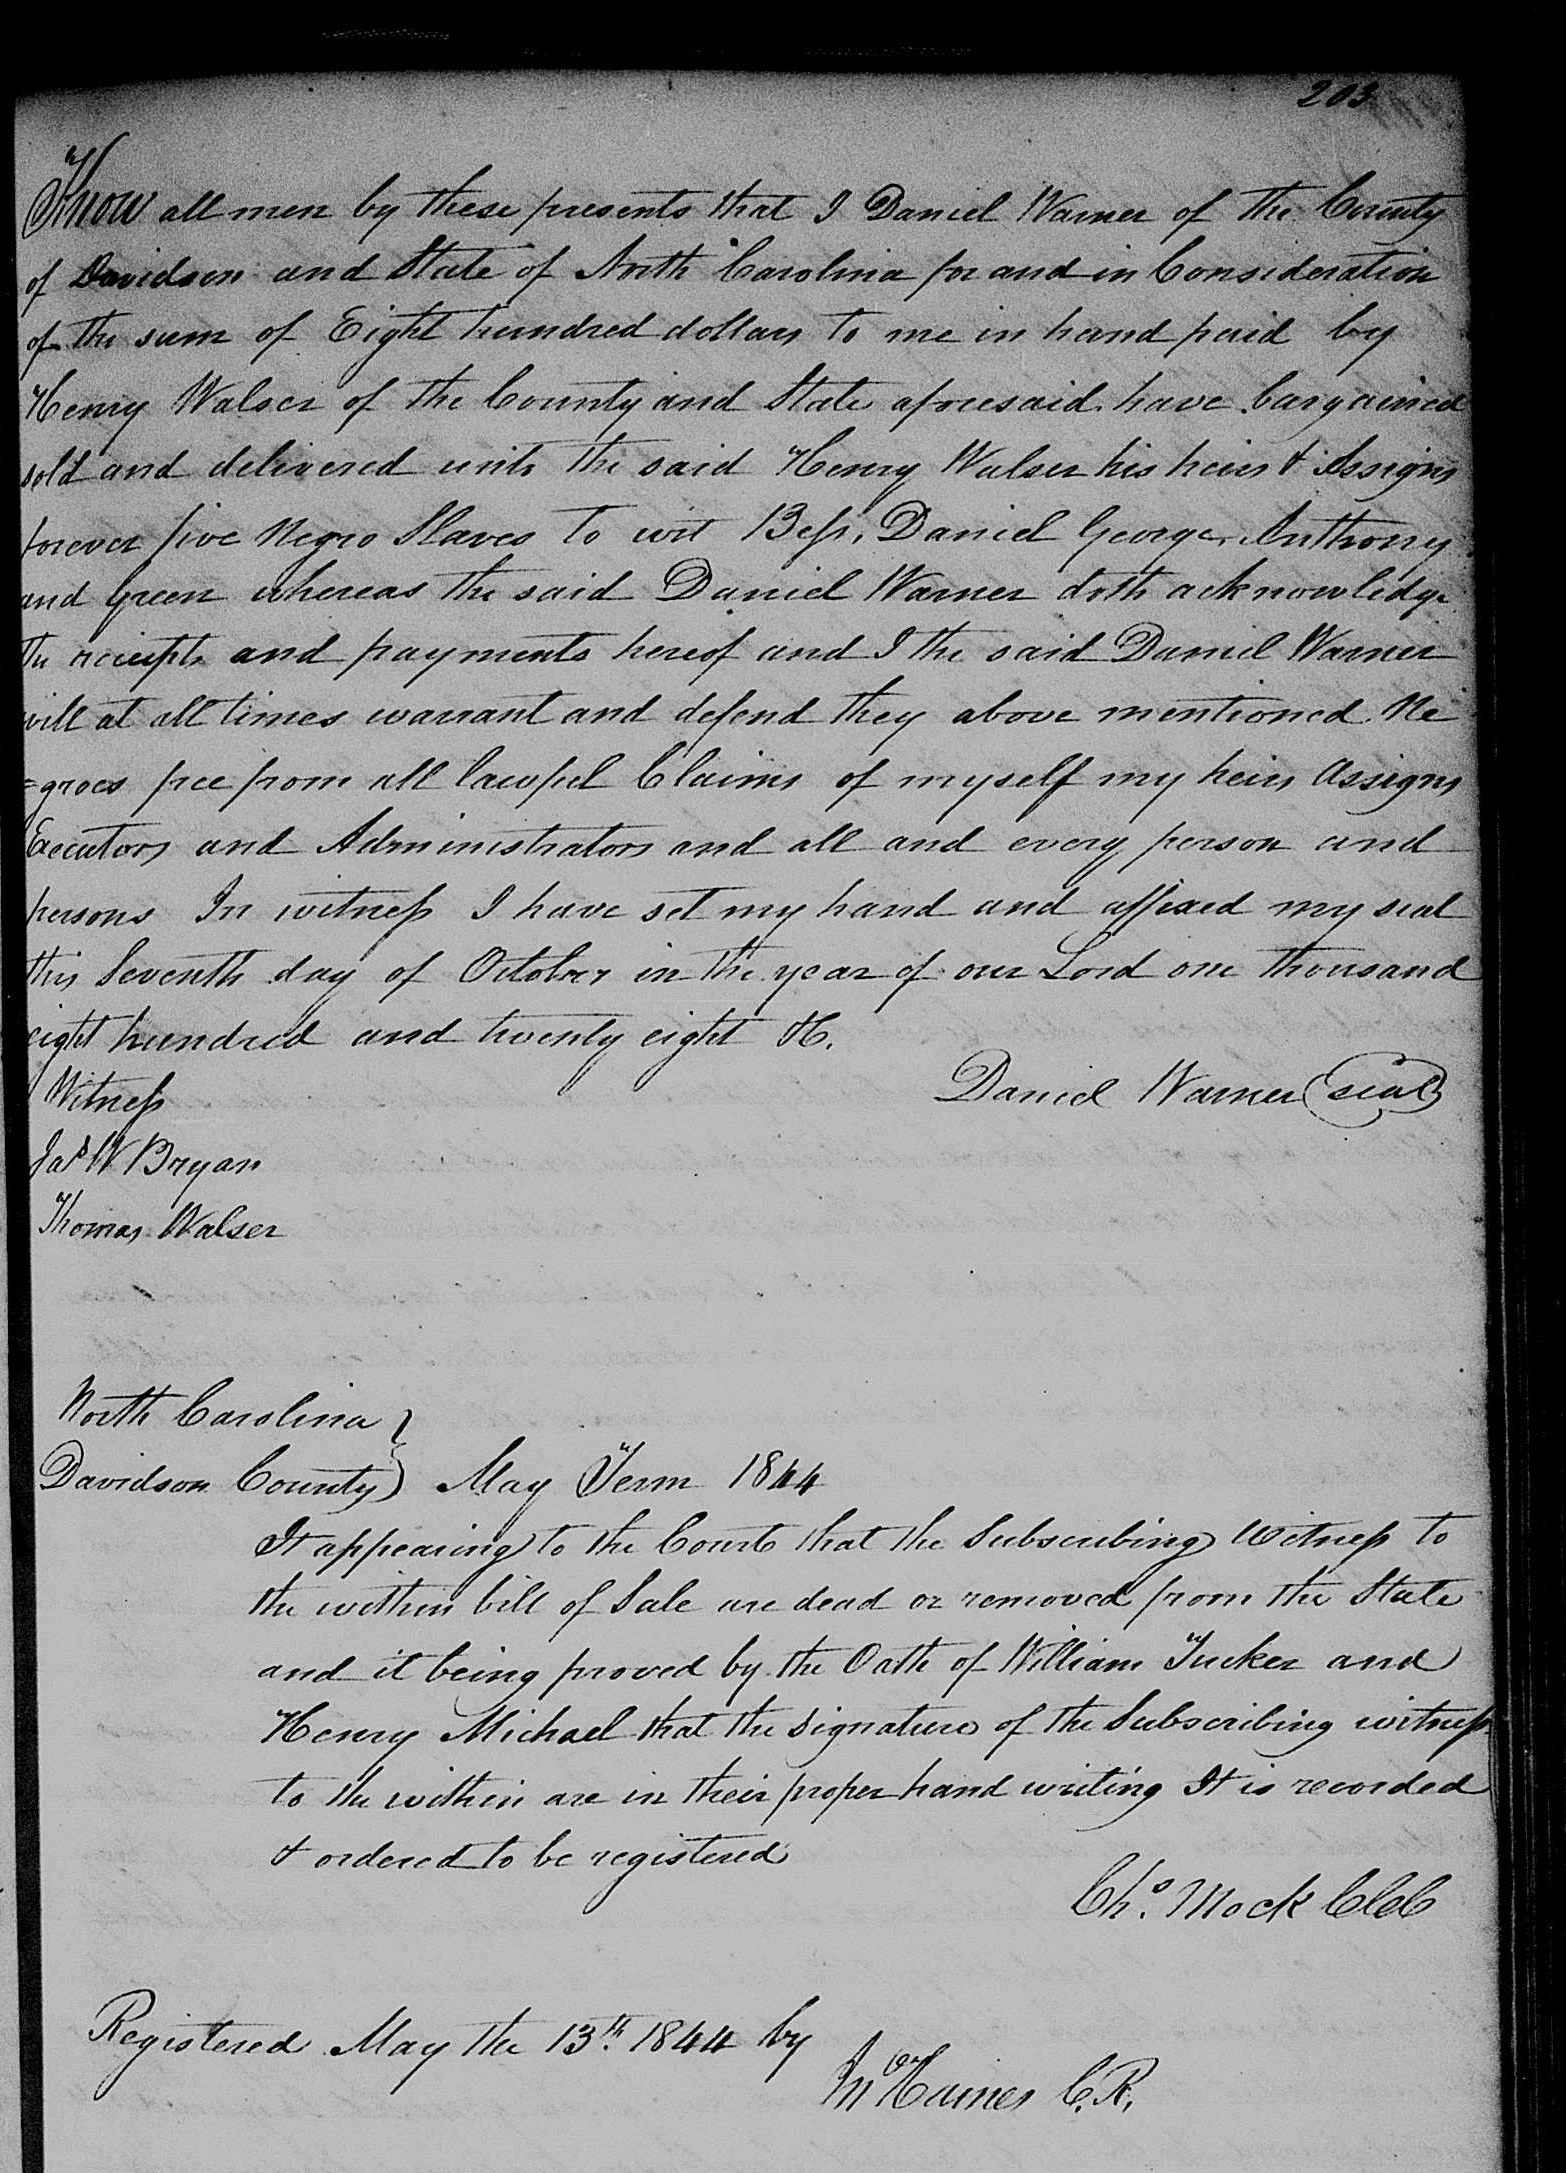 203
Know all men by these presents that I Daniel Warner of the County
of Davidson and State of North Carolina for and in Consideration
of the sum of Eight hundred dollars to me in hand paid by
Henry Walser of the County and State aforesaid have bargained
sold and delivered unto the said Henry Walser his heirs & Assigns
forever five Negro Slaves to wit Bess, Daniel George, Anthony
and Green whereas the said Daniel Warner doth acknowledge
the receipts and payments hereof and I the said Daniel Warner
will at all times warrant and defend they above mentioned Ne
=groes free from all lawful Claims of myself my heirs Assigns
Executors and Administrators and all and every person and
persons In witness I have set my hand and affixed my seal
this Seventh day of October in the year of our Lord one thousand
eight hundred and twenty eight &C.
Witness Daniel Warner (seal)
Jas W Bryan
Thomas Walser
North Carolina }
Davidson County } May Term 1844
It appearing to the Court that the Subscribing Witness to
the within bill of Sale are dead or removed from the State
and it being proved by the Oath of William Tucker and
Henry Michael that the Signatures of the Subscribing witness
to the within are in their proper hand writing It is recorded
& ordered to be registered
Chs. Mock CCC
Registered May the 13th. 1844 by
Haines C.R.